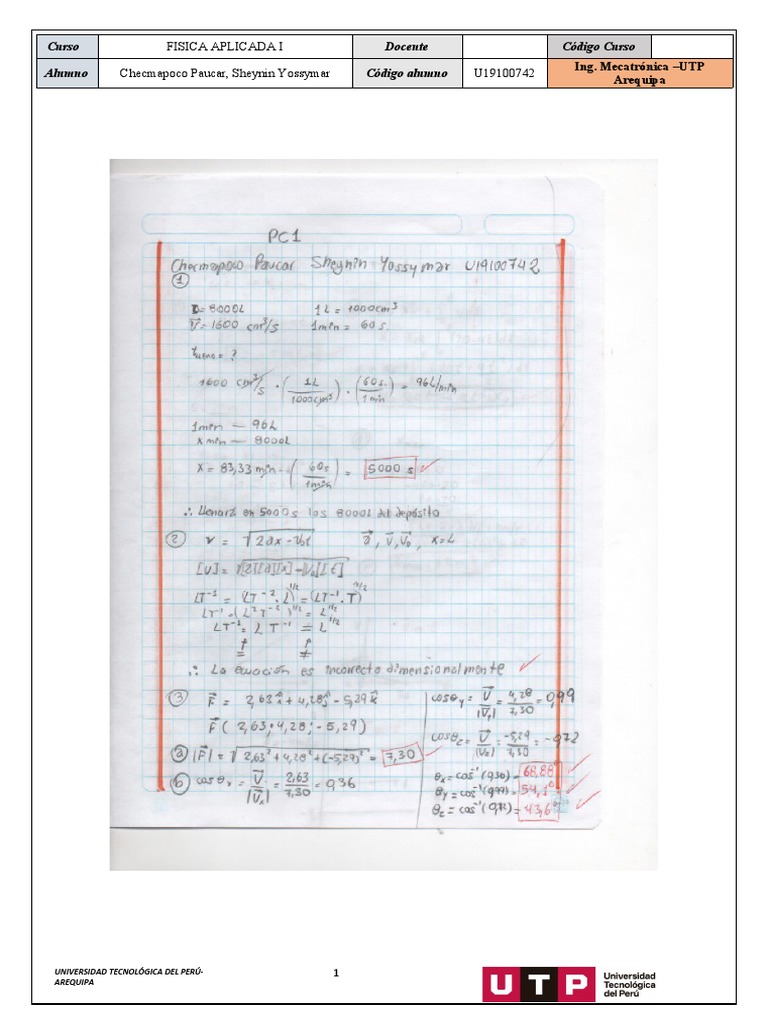 Curso FISICA APLICADA I Docente Código Curso
Alumno Checmapoco Paucar, Sheynin Yossymar Código alumno U19100742 Ing. Mecatrónica –UTP Arequipa
PC1
Checmapoco Paucar Sheynin Yossymar U19100742
1
D= 8000L 1L = 1000cm³
V⃗= 1600 cm³/s 1min = 60s.
tLleno = ?
1600 cm³/s · (1L/1000cm³) · (60s./1min) = 96L/min
1min — 96L
x min — 8000L
x = 83,33 min · (60s/1min) = 5000 s
∴ Llenará en 5000s los 8000L del depósito
2 v = √2ax - v₀t a⃗, v⃗, v⃗₀, x=L
[v] = √[2][a][x]-[v₀][t]
LT⁻¹ = (LT⁻²·L)^1/2 = (LT⁻¹·T)^1/2
LT⁻¹ = (L²T⁻²)^1/2 = L^1/2
LT⁻¹ = LT⁻¹ = L^1/2
= ≠
∴ La ecuación es incorrecto dimensionalmente
3 F⃗ = 2,63i + 4,28j - 5,29k
F⃗ ( 2,63; 4,28; -5,29)
a |F⃗| = √2,63² + 4,28² + (-5,29)² = 7,30
b cosθx = V⃗/|V⃗x| = 2,63/7,30 = 0,36
cosθy = V⃗/|V⃗y| = 4,28/7,30 = 0,99
cosθz = V⃗/|Vz| = -5,29/7,30 = -0,72
θx = cos⁻¹(0,36) = 68,88°
θy = cos⁻¹(0,99) = 54,1°
θz = cos⁻¹(0,72) = 43,6°
UNIVERSIDAD TECNOLÓGICA DEL PERÚ-
AREQUIPA
1
UTP
Universidad
Tecnológica
del Perú